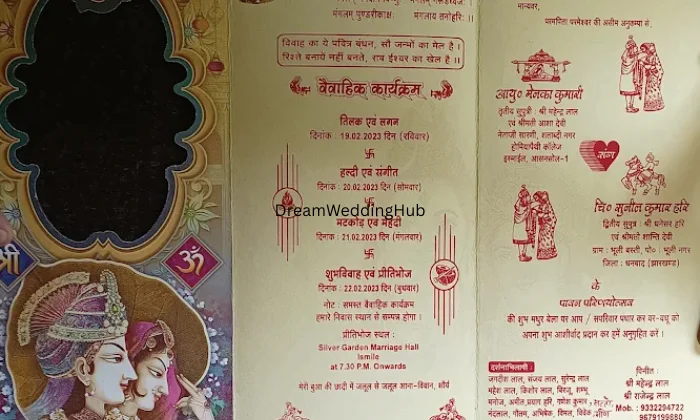 श्री
ॐ
मंगलम् पुण्डरीकाक्षः मंगलाय तनोहरिः ।।
विवाह का ये पवित्र बंधन, सौ जन्मों का मेल है ।
रिश्ते बनाये नहीं बनते, राब ईश्वर का खेल है ।।
वैवाहिक कार्यक्रम
तिलक एवं लगन
दिनांक : 19.02.2023 दिन (रविवार)
हल्दी एवं संगीत
दिनांक : 20.02.2023 दिन (सोमवार)
DreamWeddingHub
मटकोड़ एवं मेहंदी
दिनांक : 21.02.2023 दिन (मंगलवार)
शुभविवाह एवं प्रीतिभोज
दिनांक : 22.02.2023 दिन (बुधवार)
नोट : समस्त वैवाहिक कार्यक्रम
हमारे निवास स्थान से सम्पन्न होगा ।
प्रीतिभोज स्थल :
Silver Garden Marriage Hall
Ismile
at 7.30 P.M. Onwards
मेरी बुआ की छादी में जलूल से जलूल आना-
मान्यवर,
परमपिता परमेश्वर की असीम अनुकम्पा से,
आयु० मेनका कुमारी
तृतीय सुपुत्री : श्री महेन्द्र लाल
एवं श्रीमती आशा देवी
नेताजी सारणी, शताब्दी नगर
होमियोपैथी कॉलेज
इस्माईल, आसनसोल-1
संग
चि० सुनील कुमार हरि
द्वितीय सुपुत्र : श्री धनेसर हरि
एवं श्रीमती शान्ति देवी
ग्राम : भूली बस्ती, पो० : भूली नगर
जिला : धनबाद (झारखण्ड)
के
पावन परिणयोत्सव
की शुभ मधुर बेला पर आप / सपरिवार पधार कर वर-वधू को
अपना शुभ आशीर्वाद प्रदान कर हमें अनुगृहित करें ।
दर्शनाभिलाषी :
जगदीश लाल, संजय लाल, सुरेन्द्र लाल
महेश लाल, किशोर लाल, बिरजू, शम्भू
मनोज, अमीत, प्रयाग हरि, गणेश कुमार
नंदलाल, गौतम, अभिषेक, विशाल, विवेक
विनीत :
श्री महेन्द्र लाल
श्री राजेन्द्र लाल
Mob. : 9332294722
9679199880